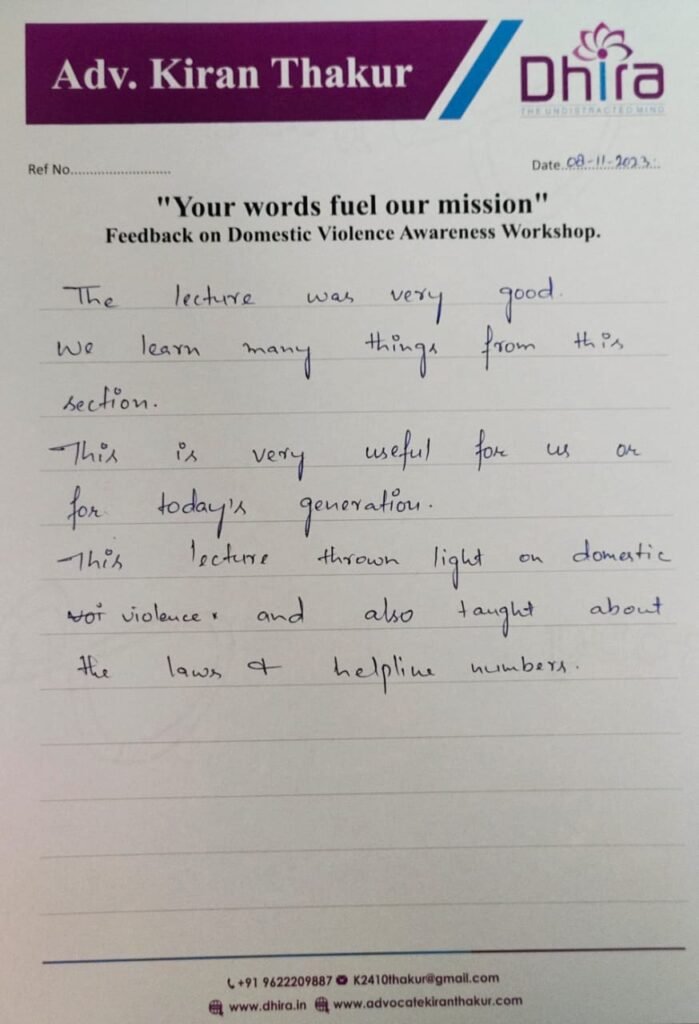 Adv. Kiran Thakur
Dhira
THE UNDISTRACTED MIND
Ref No..........................
Date. 08-11-2023.
"Your words fuel our mission"
Feedback on Domestic Violence Awareness Workshop.
The lecture was very good.
We learn many things from this
section.
This is very useful for us or
for today's generation.
This lecture thrown light on domestic
violence. and also taught about
the laws & helpline numbers.
+91 9622209887 K2410thakur@gmail.com
www.dhira.in www.advocatekiranthakur.com